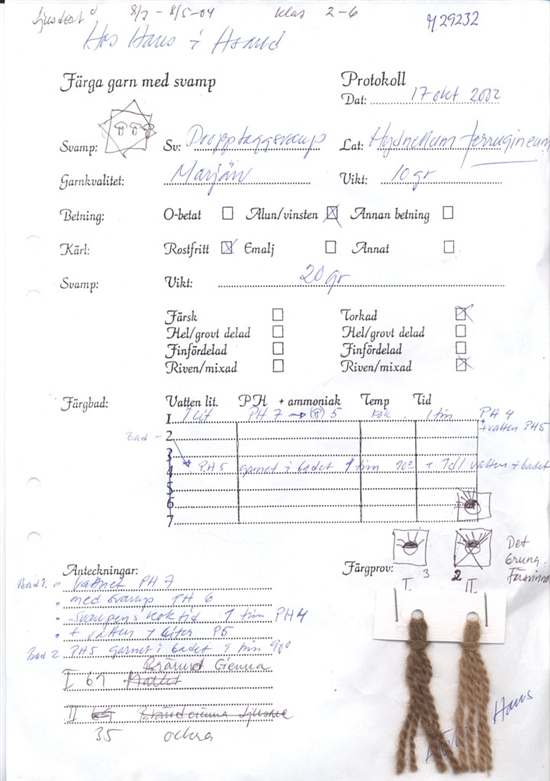 Ljustest 8/7 - 8/5-04 klas 2-6 M29232
Hos Hans i
Färga garn med svamp Protokoll
Dat: 17 okt 2002
Svamp: Sv: Dropptaggsvamp Lat: Hydnellum ferrugineum
Garnkvalitet: Vikt: 10 gr
Betning: O-betat Alun/vinsten Annan betning
Kärl: Rostfritt Emalj Annat
Svamp: Vikt: 20 gr
Färsk Torkad
Hel/grovt delad Hel/grovt delad
Finfördelad Finfördelad
Riven/mixad Riven/mixad
Färgbad: Vatten lit. PH + ammoniak Temp Tid
1 1 lit PH 7 → 5 Kok 1 tim PH 4
+ vatten PH5
Bad - 2
3
4 PH5 garnet i badet 1 tim 90° + 1 dl vatten i badet
5
6
7
Anteckningar: Färgprov: I. 3 2 II. Det
Bad 1. vattnet PH 7
med svamp PH 6
svampens koktid 1 tim PH4
+ vatten 1 liter P5
Bad 2 PH5 garnet i badet 1 tim 90°
Bränd Sienna
I 61
II
35 ockra
Hans